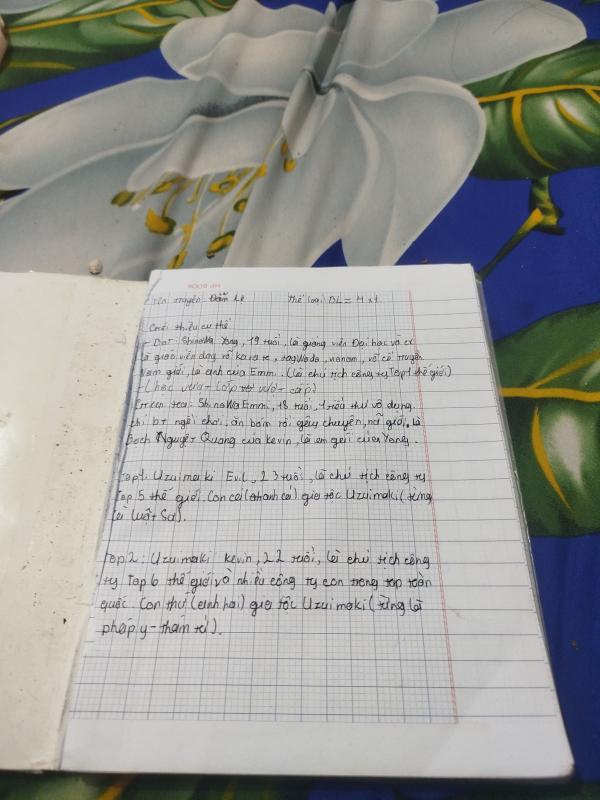 Tên truyện Đam Mê Thể loại DL = 4 x 1
Giới thiệu cụ thể
Shinowa Yong, 19 tuổi, là giảng viên Đại học và
là giáo viên dạy võ karate, vovinam, võ cổ truyền
Nam giới, là anh của Emmi. (là chủ tịch công ty Top 1 thế giới)
(học vượt lớp vượt cấp)
Green tea: Shinowa Emmi, 18 tuổi, 1 tiểu thư vô dụng
chỉ bt ngồi chơi, ăn bám rồi gây chuyện, nữ giới, là
Bạch Nguyệt Quang của Kevin, là em gái của Yong.
Top 1: Uzuimaki Evil, 23 tuổi, là chủ tịch công ty
Top 5 thế giới. Con cả (anh cả) gia tộc Uzuimaki (từng
là luật sư).
Top 2: Uzuimaki Kevin, 22 tuổi, là chủ tịch công
ty Top 6 thế giới và nhiều công ty con trong top toàn
quốc. Con thứ (anh hai) gia tộc Uzuimaki (từng là
pháp y - thám tử).